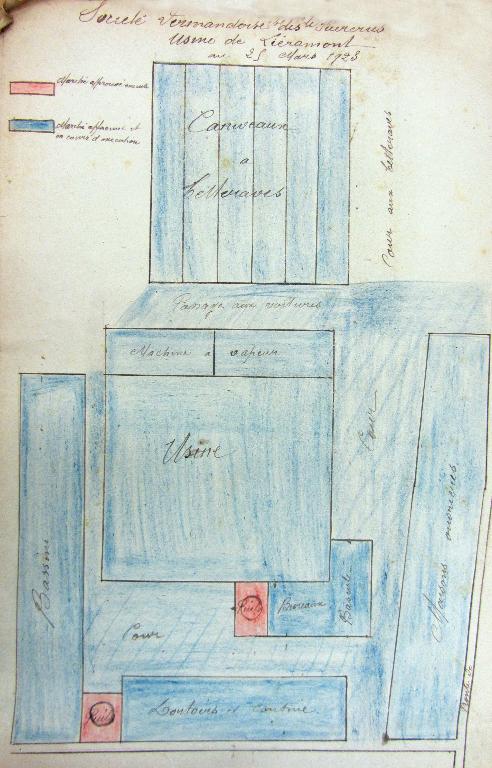 Société Vermandoise des Sucreries
Usine de Liéramont
au 25 Mars 1923
Marché approuvé
Marché approuvé et
en cours d'exécution
Caniveaux
a
betteraves
Cour aux betteraves
Passage aux voitures
Machine a vapeur
Usine
Cour
Bassins
Maisons ouvrières
Puits
Bureaux
Bascule
Cour
Puits
Dortoirs et cantine
Route de